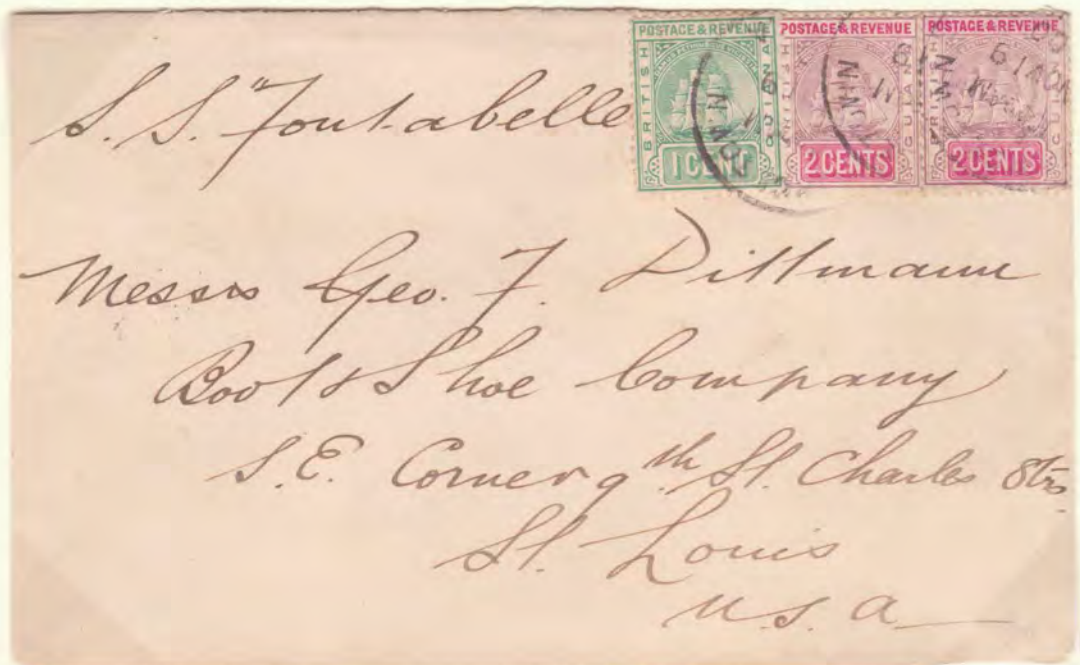 S.S. "Fontabelle
POSTAGE & REVENUE
BRITISH
GUIANA
1 CENT
POSTAGE & REVENUE
BRITISH
GUIANA
2 CENTS
POSTAGE & REVENUE
BRITISH
GUIANA
2 CENTS
Messrs Geo. F. Dittmann
Boot & Shoe Company
S.E. Corner 9th St. Charles Strs
St. Louis
U.S.A